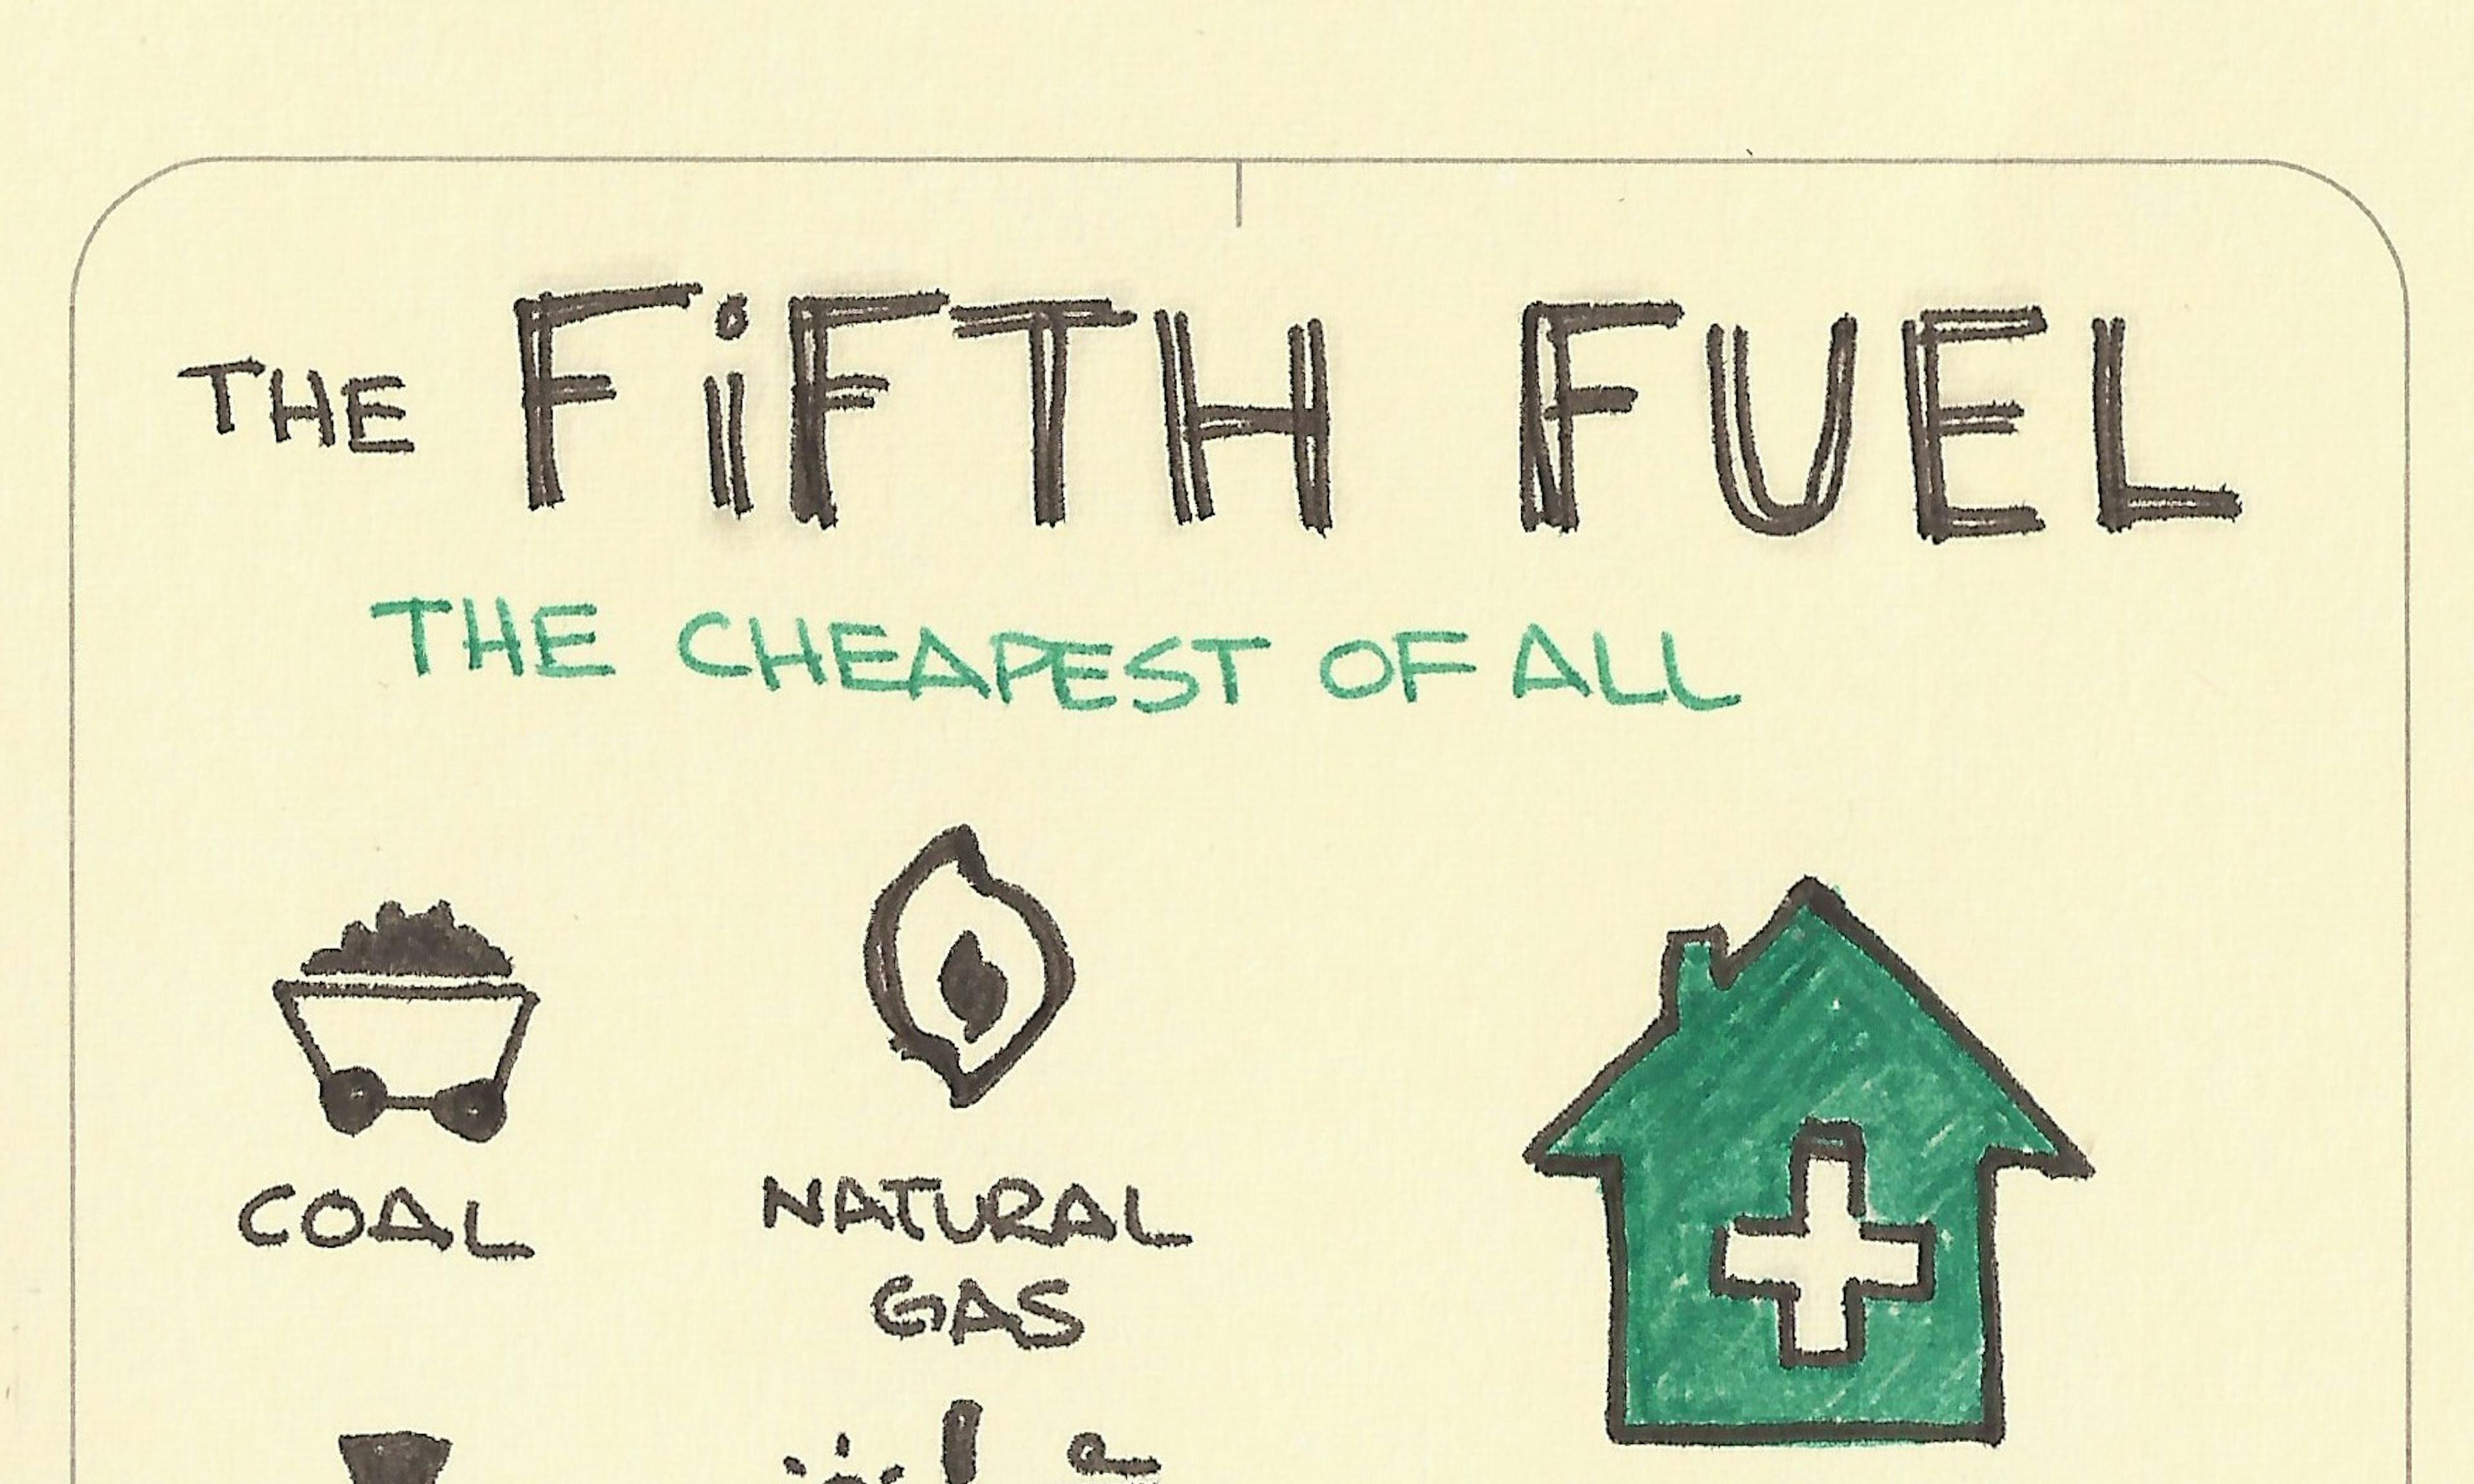 THE FiFTH FUEL
THE CHEAPEST OF ALL
COAL
NATURAL
GAS